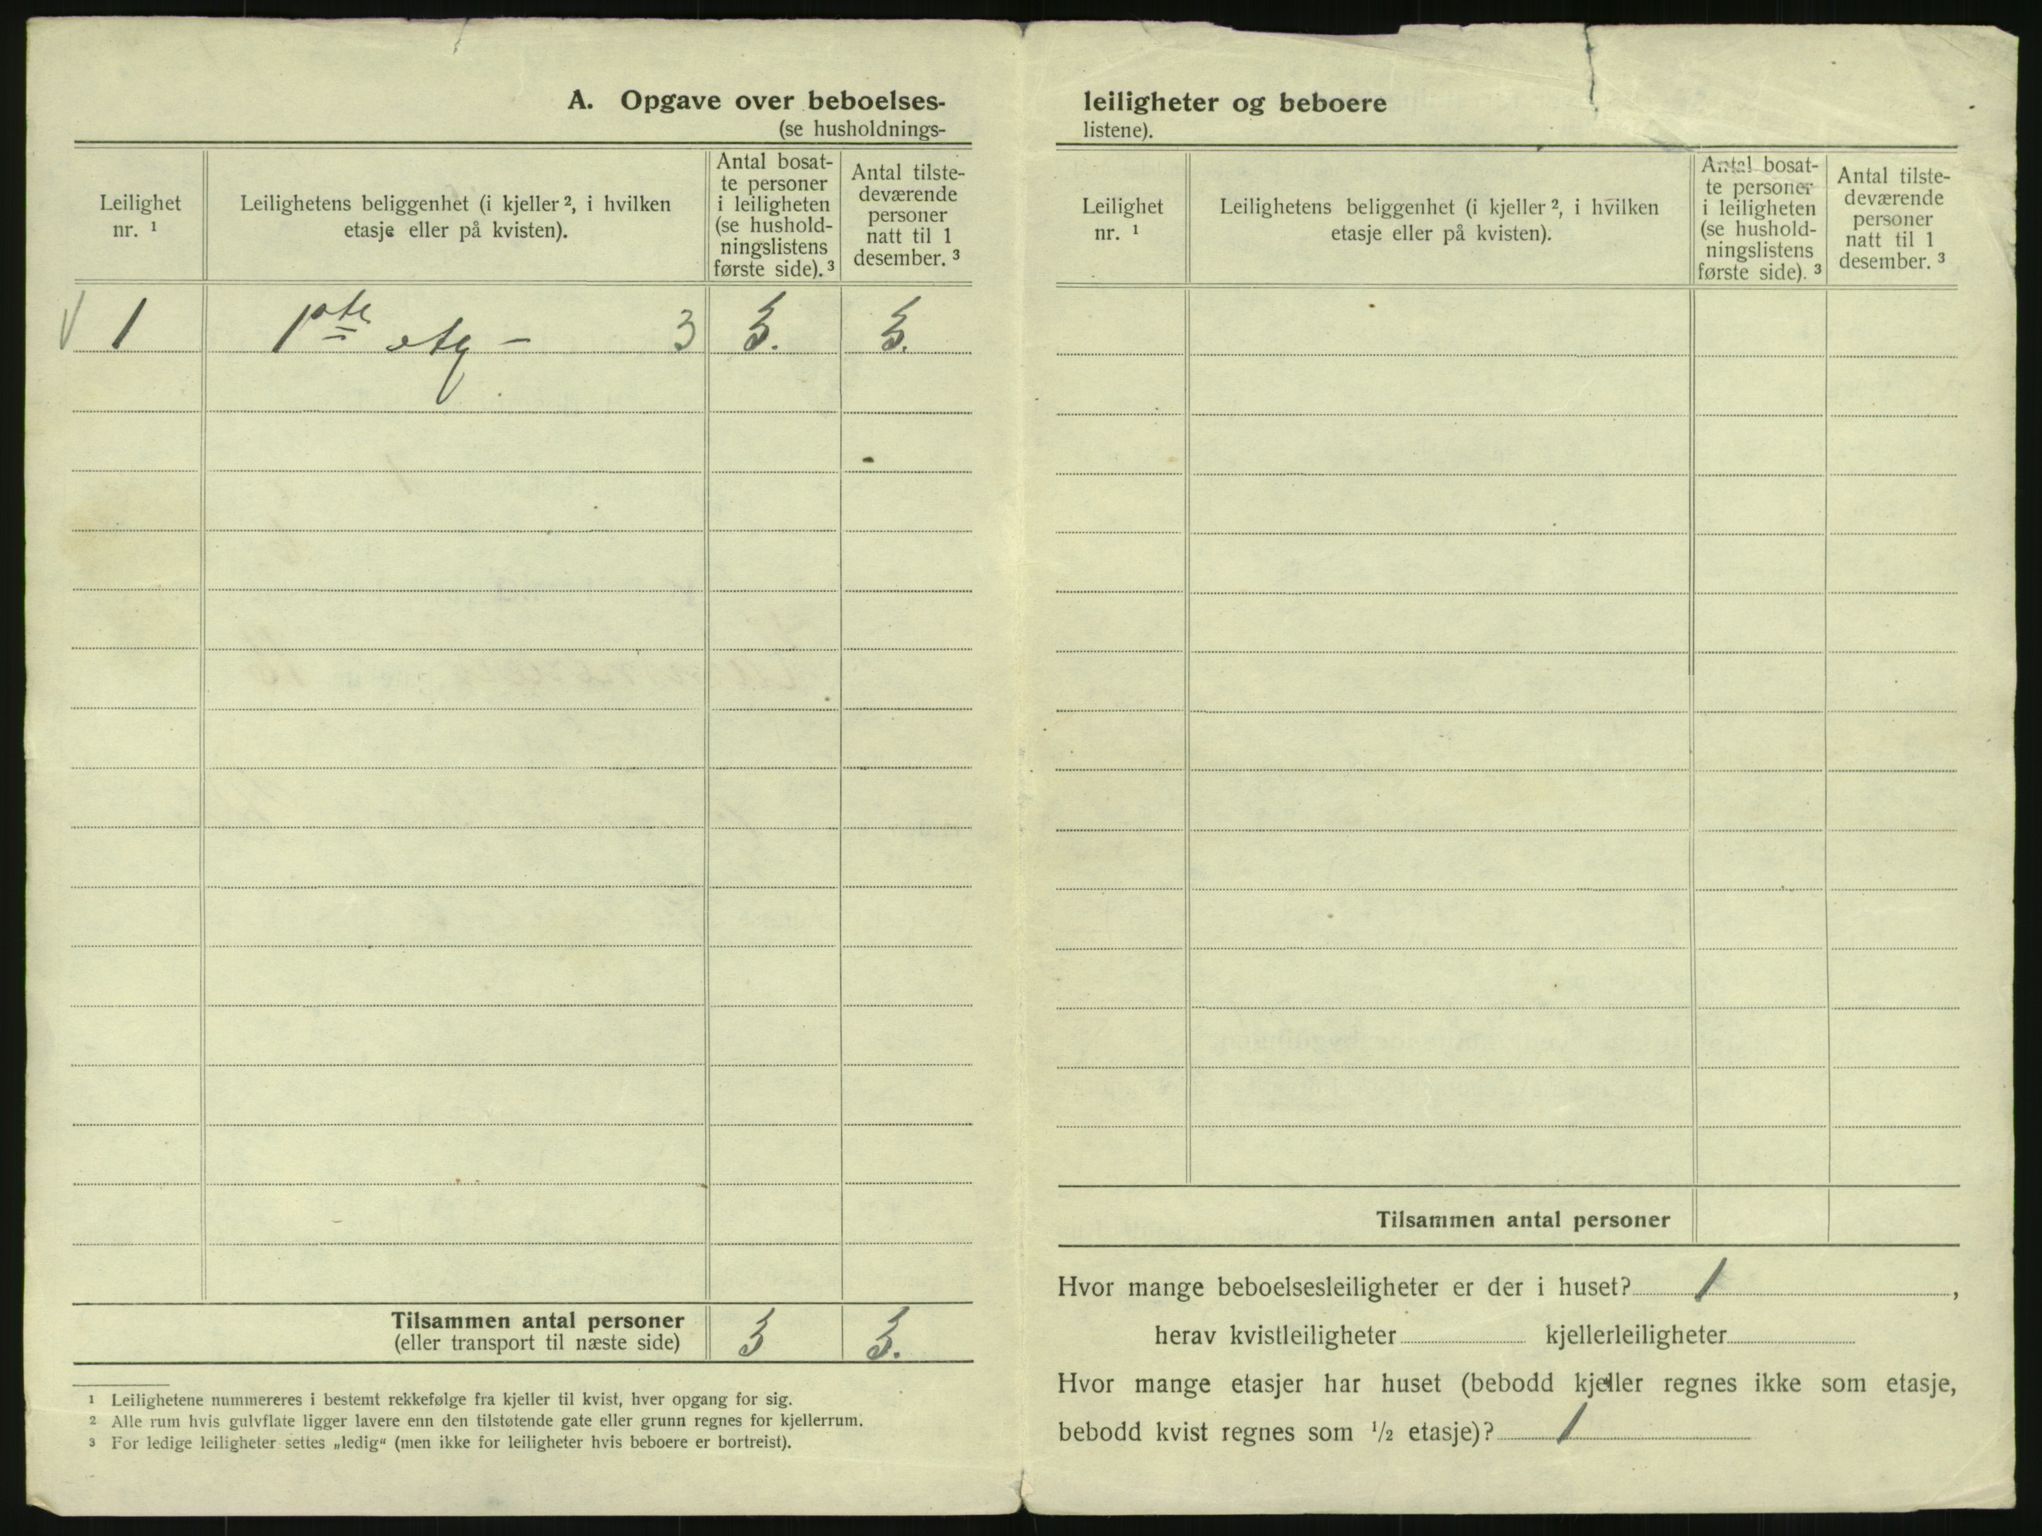 A. Opgave over beboelses-
(se husholdnings-
Leilighet
nr. 1
Leilighetens beliggenhet (i kjeller 2, i hvilken
etasje eller på kvisten).
Antal bosat-
te personer
i leiligheten
(se hushold-
ningslistens
første side). 3
Antal tilste-
deværende
personer
natt til 1
desember. 3
1 1ste etg – 3 3. 3.
Tilsammen antal personer 3 3.
(eller transport til næste side)
1 Leilighetene nummereres i bestemt rekkefølge fra kjeller til kvist, hver opgang for sig.
2 Alle rum hvis gulvflate ligger lavere enn den tilstøtende gate eller grunn regnes for kjellerrum.
3 For ledige leiligheter settes „ledig“ (men ikke for leiligheter hvis beboere er bortreist).
leiligheter og beboere
listene).
Leilighet
nr. 1
Leilighetens beliggenhet (i kjeller 2, i hvilken
etasje eller på kvisten).
Antal bosat-
te personer
i leiligheten
(se hushold-
ningslistens
første side). 3
Antal tilste-
deværende
personer
natt til 1
desember. 3
Tilsammen antal personer
Hvor mange beboelsesleiligheter er der i huset? 1,
herav kvistleiligheter kjellerleiligheter
Hvor mange etasjer har huset (bebodd kjeller regnes ikke som etasje,
bebodd kvist regnes som 1/2 etasje)? 1